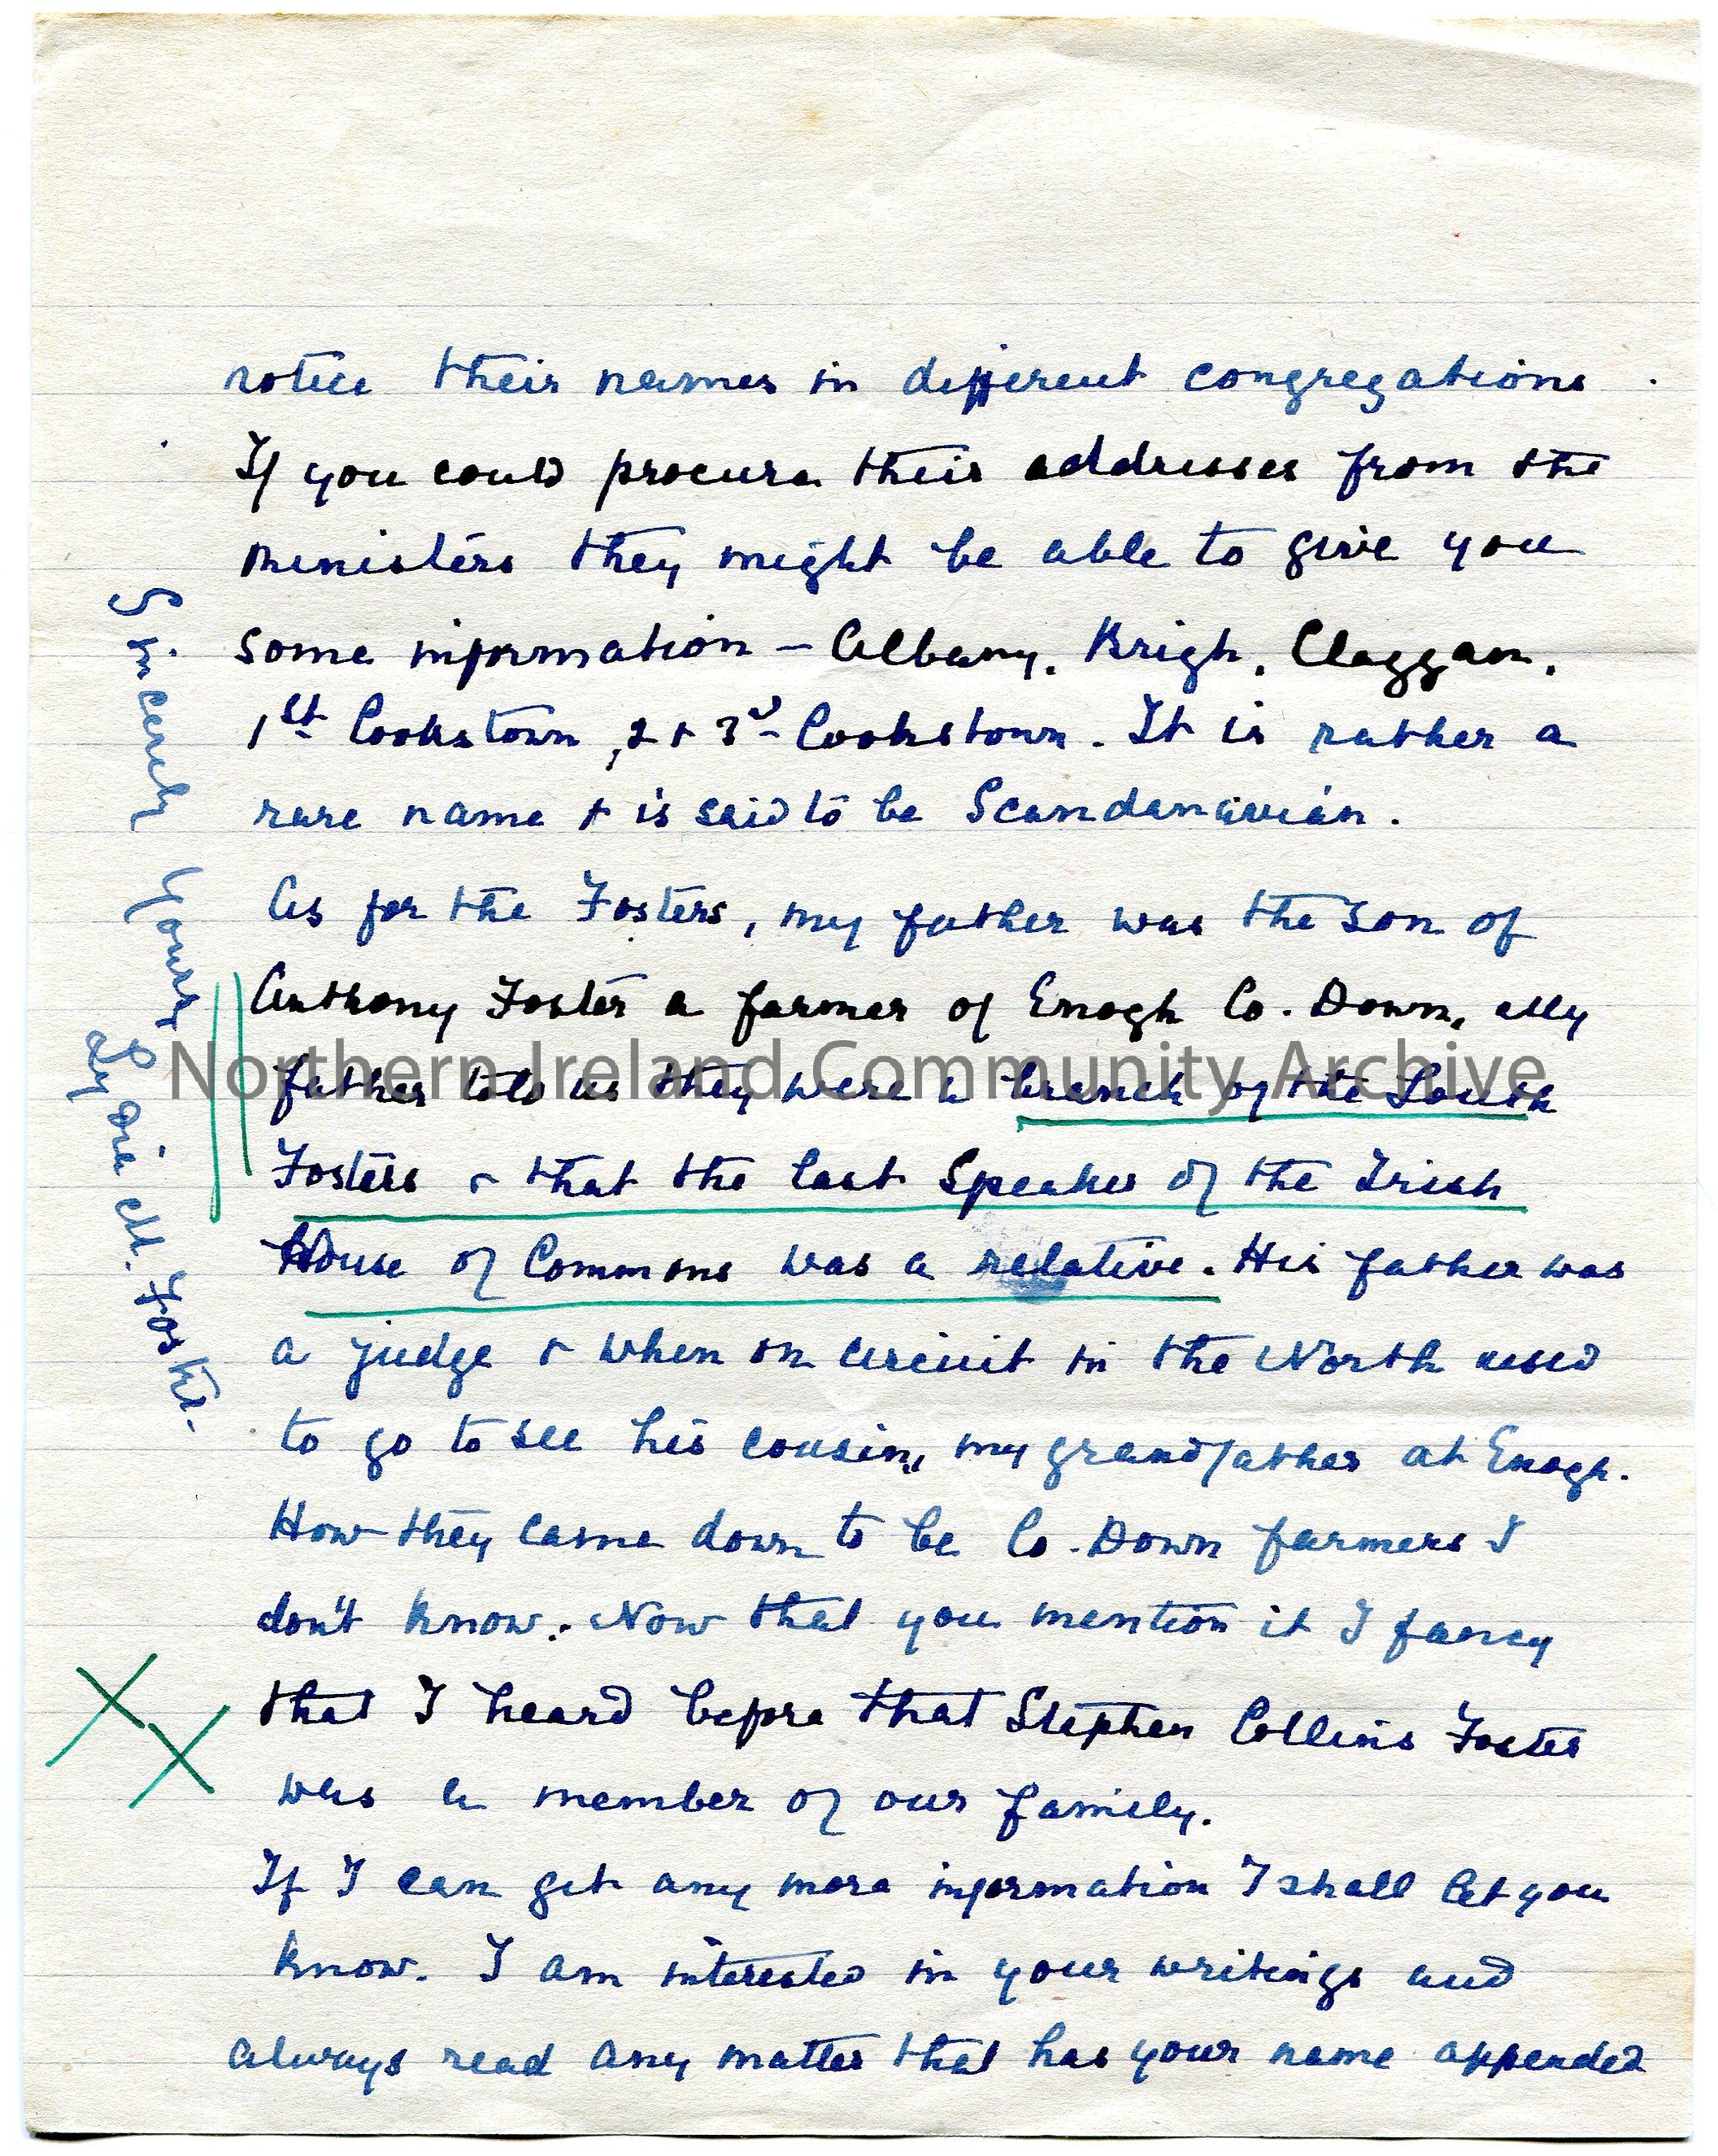 notice their names in different congregations.
If you could procure their addresses from the
ministers they might be able to give you
some information – Albany, Brigh, Claggan,
1st Cookstown, 2 + 3d Cookstown. It is rather a
rare name + is said to be Scandanavian.
As for the Fosters, my father was the son of
Anthony Foster a farmer of Enogh Co. Down, My
father told us they were a branch of the Louth
Fosters + that the last Speaker of the Irish
House of Commons was a relative. His father was
a judge + when on circuit in the North used
to go to see his cousin, my grandfather at Enogh.
How they came down to be Co. Down farmers I
don't know. Now that you mention it I fancy
that I heard before that Stephen Collins Foster
was a member of our family.
If I can get any more information I shall let you
know. I am interested in your writings and
always read any matter that has your name appended
Sincerely yours
Lydia M. Foster.
Northern Ireland Community Archive